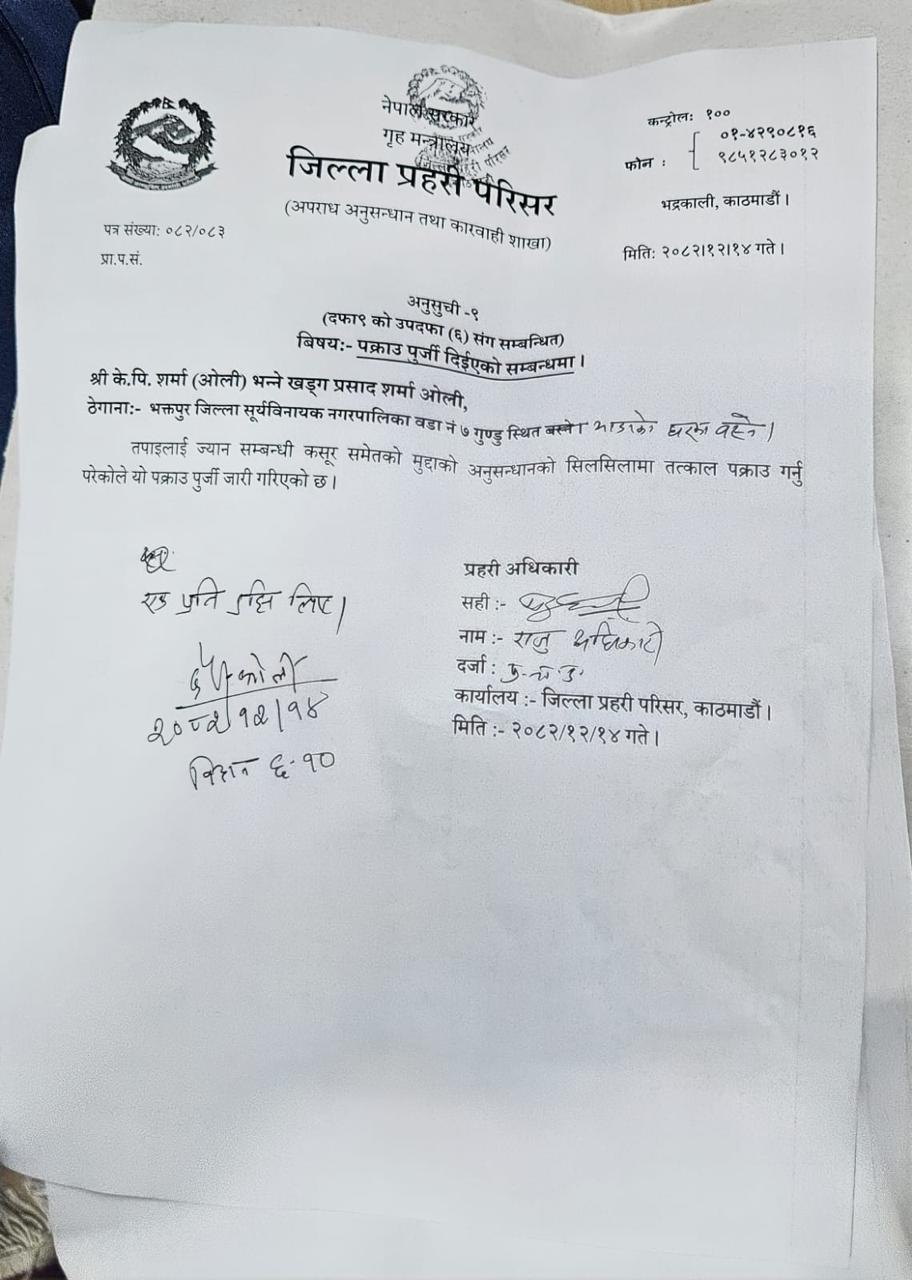 नेपाल सरकार
गृह मन्त्रालय
जिल्ला प्रहरी परिसर
(अपराध अनुसन्धान तथा कारवाही शाखा)
कन्ट्रोल: १००
फोन : ०१-४२९०८१६
९८५१२८३०१२
भद्रकाली, काठमाडौं।
पत्र संख्या: ०८२/०८३
प्रा.प.सं.
मिति: २०८२।१२।१४ गते।
अनुसुची -९
(दफा९ को उपदफा (६) संग सम्बन्धित)
बिषय:- पक्राउ पुर्जी दिईएको सम्बन्धमा।
श्री के.पि. शर्मा (ओली) भन्ने खड्ग प्रसाद शर्मा ओली,
ठेगाना:- भक्तपुर जिल्ला सूर्यविनायक नगरपालिका वडा नं ७ गुण्डु स्थित बस्ने। भाडाको घरमा बस्ने।
तपाइलाई ज्यान सम्बन्धी कसूर समेतको मुद्दाको अनुसन्धानको सिलसिलामा तत्काल पक्राउ गर्नु
परेकोले यो पक्राउ पुर्जी जारी गरिएको छ।
एक प्रति बुझि लिए।
ओली
२०८२।१२।१४
बिहान ६.१०
प्रहरी अधिकारी
सही :-
नाम :- राजु अधिकारी
दर्जा :
कार्यालय :- जिल्ला प्रहरी परिसर, काठमाडौं।
मिति :- २०८२/१२/१४ गते।